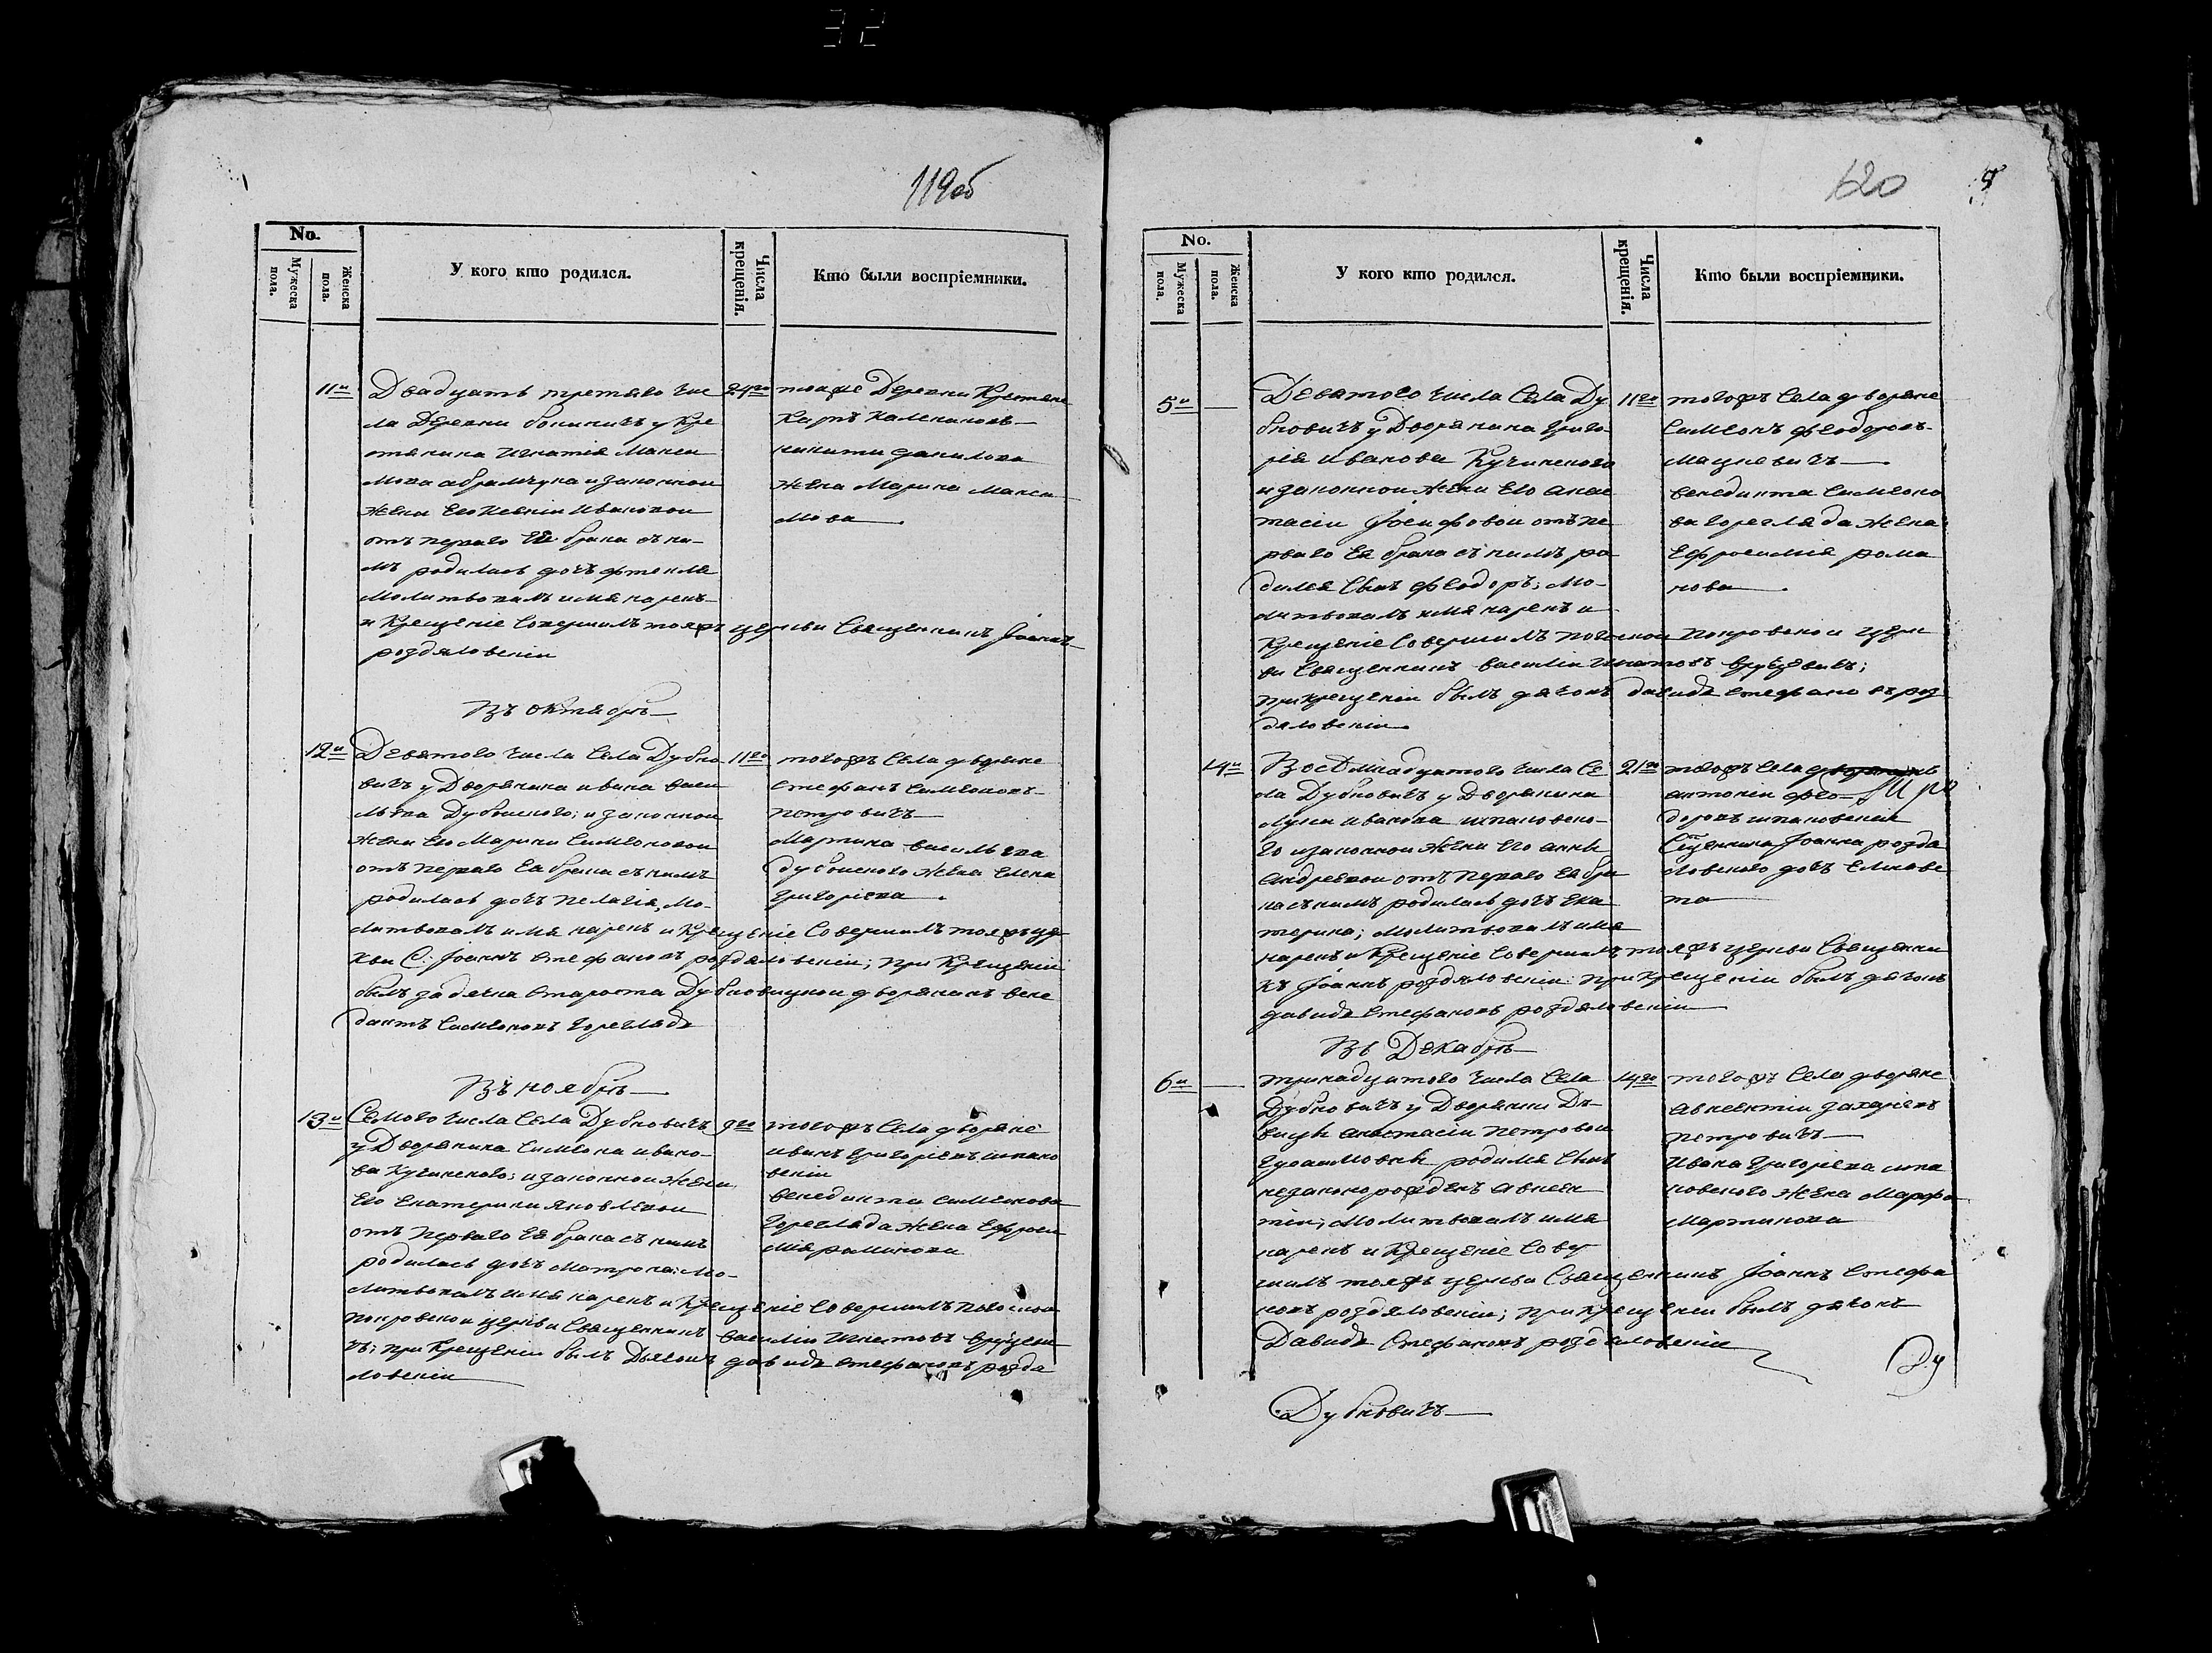 32
119об
No.
Мужеска пола.
Женска пола.
У кого кто родился.
Числа крещенія.
Кто были воспріемники.
11й
Двадцать третяго чис
ла Деревни бониничъ у Кре
стянина Игнатія Макси
мова абрамчука и законной
жены Его Ивановой
отъ перваго Ея брака съ ни-
мъ родилась дочь фтекля
Молитвовалъ имя нарекъ
и Крещеніе Совершилъ тояжъ церкви Священникъ Іоаннъ
роздяловскій
24го
тояже Деревни Крстяне
Карпъ
никити данилова
жена Марина Макси
мова
Въ октябрѣ
12й
Девятого числа Села Дубно
вичъ у Дворянина ивана васи
льева Дубинского; и законной
жени Его Марини Симеоновой
отъ перваго Ея брака съ нимъ
родилась дочь пелагія, Мо-
литвовалъ имя нарекъ и Крещеніе Совершилъ тояжъ цер
кви С: Іоаннъ Стефановъ роздяловскій; при Крещеніи
былъ за дячка Староста Дубновицкой дворянинъ Вене
диктъ Симеоновъ Горегляда
11го
тогожъ Села дворяне
Стефанъ Симеоновъ
петровичъ
Мартина васильева
дубинского жена Елена
григоріева
Въ ноябрѣ
13й
Семого числа Села Дубновичъ
у Дворянина Симеона ивано-
ва Кучинского; и законной жени
Его Екатерини яковлевой
отъ перваго Ея брака съ нимъ
родилась дочь Матрона; Мо-
литвовалъ имя нарекъ и Крещеніе Совершилъ
покровской церкви Священникъ василій Игнатовъ
при Крещеніи былъ Дьячокъ давидъ стефановъ роздя
ловскій
9го
тогожъ Села дворяне
иванъ григоріевъ шпако
вскій
венедикта симеонова
Горегляда жена Ефроси
нія романова
120
No.
Мужеска пола.
Женска пола.
У кого кто родился.
Числа крещенія.
Кто были воспріемники.
5й
Девятого числа Села Ду
бновичъ у Дворянина григо-
рія иванова Кучинского
и законной жени Его анас
тасіи Іосифовой отъ пе
рваго Ея брака съ нимъ ро
дился сынъ феодоръ; Мо-
литвовалъ имя нарекъ и
Крещеніе Совершилъ покровской церк
ви Священникъ василій Игнатовъ
при крещеніи былъ дячокъ давидъ стефановъ роз
дяловскій
11го
тогожъ Села дворяне
Симеонъ феодоровъ
Мацкевичъ
венедикта Симеоно
ва горегляда жена
Ефросинія рома
нова
14й
Восемнадцатого числа Се
ла Дубновичъ у Дворянина
Луки иванова шпаковско-
го и законной жени Его анни
андреевой отъ перваго Ея бра
ка съ нимъ родилась дочь Ека
терина; Молитвовалъ имя
нарекъ и Крещеніе Совершилъ тояжъ церкви Священни
къ Іоаннъ роздяловскій при Крещеніи былъ дячокъ
давидъ стефановъ роздяловскій
21го
тогожъ Села дворянинъ
антоній фео-
доровъ шпаковскій
Сщенника Іоанна роздя
ловского дочь Елисаве
та
Въ Декабрѣ
6й
тринадцатого числа Села
Дубновичъ у Дворянки Дѣ-
вицы анастасіи петровой
родился сынъ
незаконорожденъ авксен
тій; Молитвовалъ имя
нарекъ и Крещеніе Совер
шилъ тояжъ церкви Священникъ Іоаннъ Стефа
новъ роздяловскій; при Крещеніи былъ дячокъ
Давидъ Стефановъ роздяловскій
14го
тогожъ Села дворяне
авксентій захаріевъ
петровичъ
ивана григоріева шпа
ковского жена Марфа
Мартинова
Ду
Дубновичъ